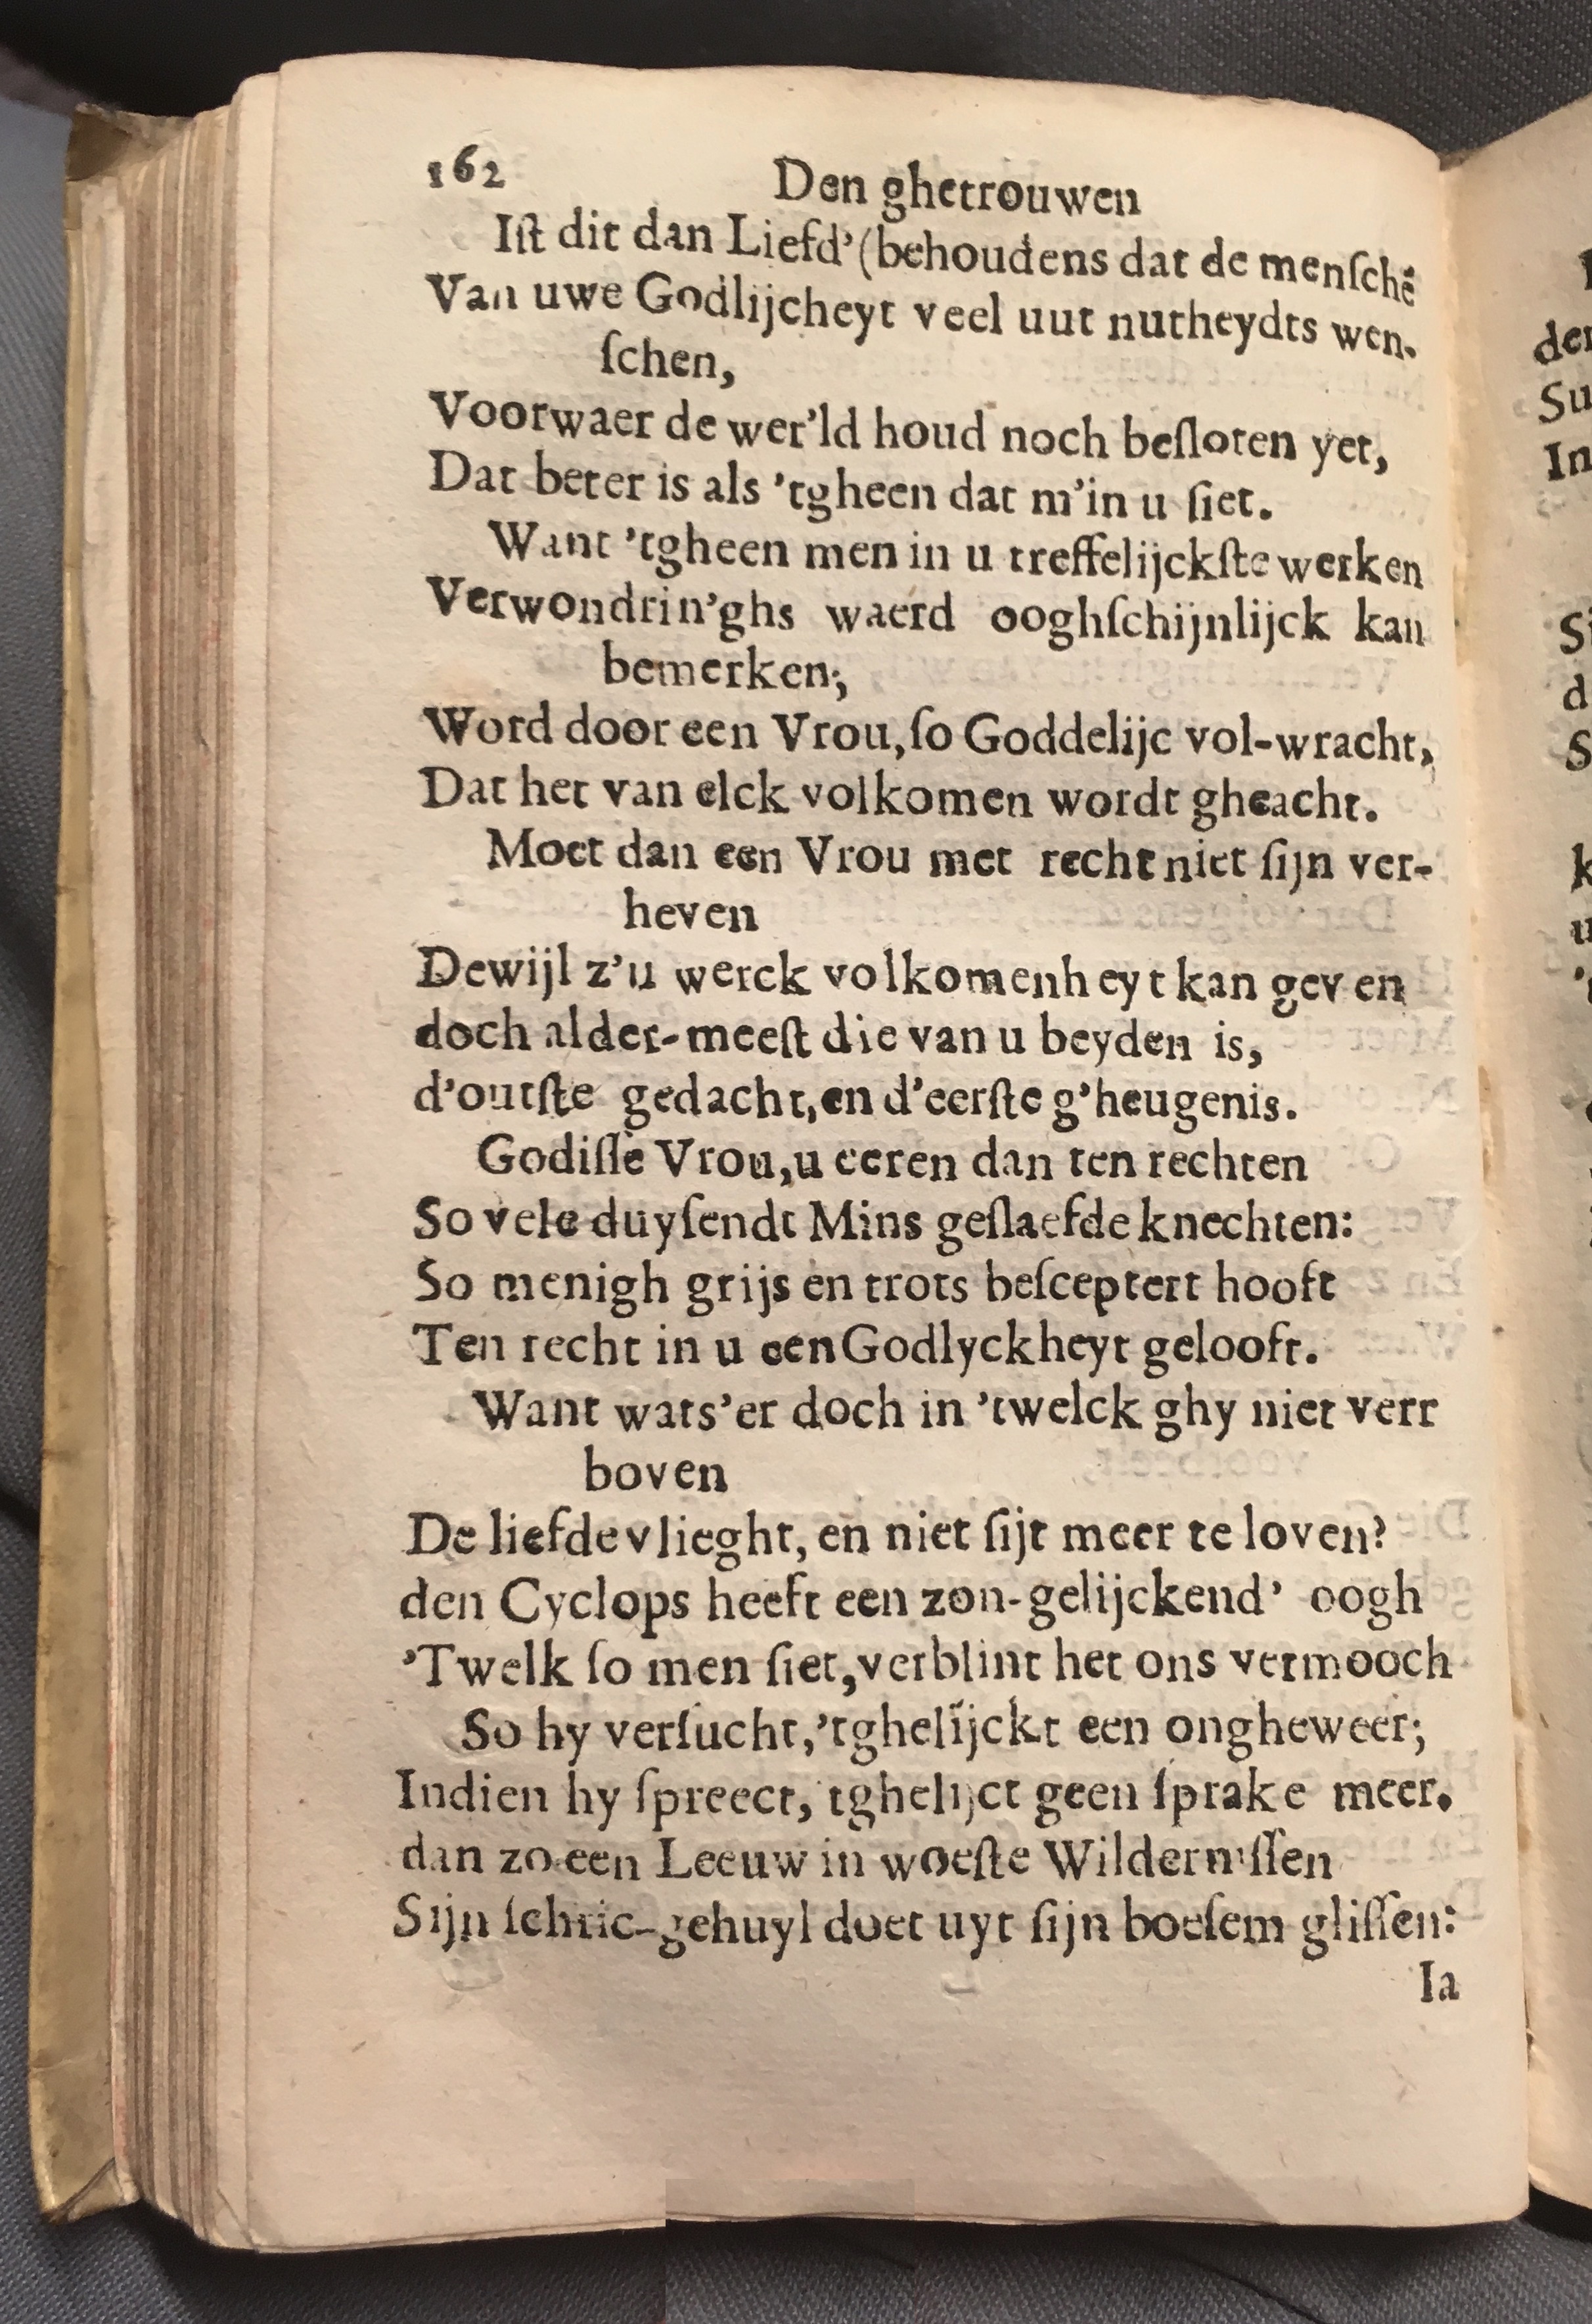 162 Den ghetrouwen
Iſt dit dan Liefd' (behoudens dat de menſchē
Van uwe Godlijcheyt veel uut nutheydts wen-
ſchen,
Voorwaer de wer'ld houd noch beſloten yet,
Dat beter is als 'tgheen dat m'in u ſiet.
Want 'tgheen men in u treffelijckſte werken
Verwondrin'ghs waerd ooghſchijnlijck kan
bemerken;
Word door een Vrou, ſo Goddelijc vol-wracht,
Dat het van elck volkomen wordt gheacht.
Moet dan een Vrou met recht niet ſijn ver-
heven
Dewijl z'u werck volkomenheyt kan geven
doch alder-meeſt die van u beyden is,
d'outſte gedacht, en d'eerſte g'heugenis.
Godiſſe Vrou, u eeren dan ten rechten
So vele duyſendt Mins geſlaefde knechten:
So menigh grijs en trots beſceptert hooft
Ten recht in u een Godlyckheyt gelooft.
Want wats'er doch in 'twelck ghy niet verr
boven
De liefde vlieght, en niet ſijt meer te loven?
den Cyclops heeft een zon-gelijckend' oogh
'Twelk ſo men ſiet, verblint het ons vermooch
So hy verſucht, 'tghelijckt een ongheweer;
Indien hy ſpreect, tghelijct geen ſprake meer.
dan zo een Leeuw in woeſte Wilderniſſen
Sijn ſchric-gehuyl doet uyt ſijn boeſem gliſſen:
Ia
der
Su
In